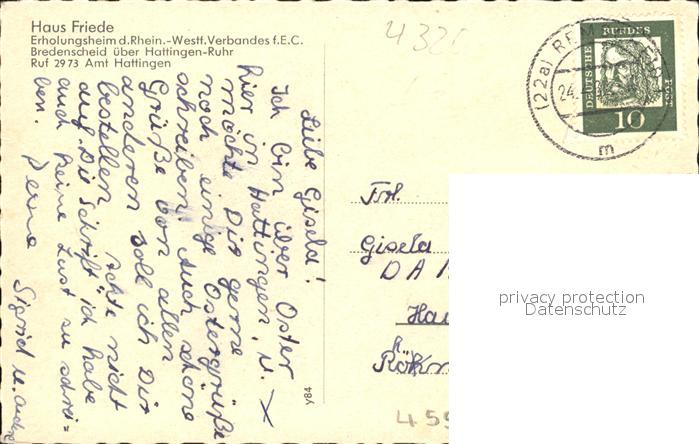 Haus Friede
Erholungsheim d. Rhein.-Westf. Verbandes f. E. C.
Bredenscheid über Hattingen-Ruhr
Ruf 2973 Amt Hattingen
432
(22a) REM
24.
m
DEUTSCHE
BUNDES
POST
10
Liebe Gisela!
Ich bin über Oster
hier in Hattingen, u.
möchte Dir gerne
noch einige Ostergrüße
schreiben. Auch schöne
Grüße von allen
anderen soll ich Dir
bestellen. Achte nicht
auf "Die Schrift" ich habe
auch keine Lust zu schrei=
ben.
Sigrid u.
y84
Frl.
Gisela
DA
Hau
Rök
459
privacy protection
Datenschutz